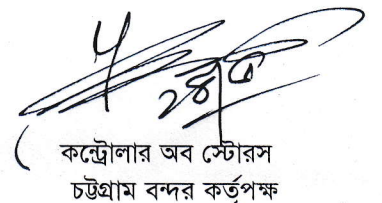 কন্ট্রোলার অব স্টোরস
চট্টগ্রাম বন্দর কর্তৃপক্ষ